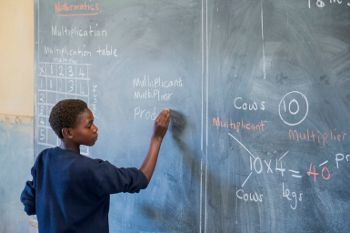 Mathematics
Multiplication
Multiplication table
X 1 2 3 4
1
2
3
4
5
Multiplicant
Multiplier
Prod
Cows 10
Multiplicant
Multiplier
10 × 4 = 40
Cows legs